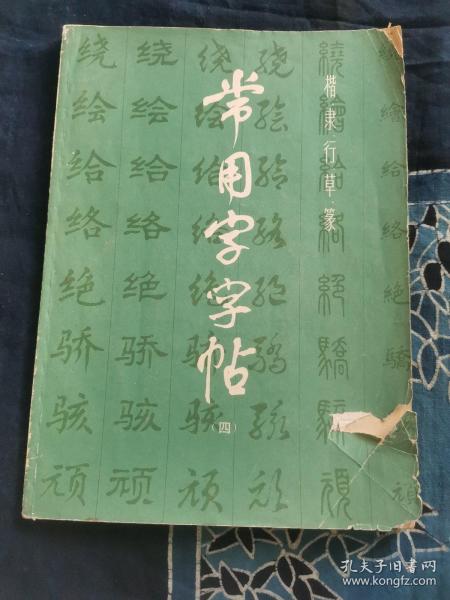 常用字字帖
（四）
楷·隶·行·草·篆
绕 绕 绕 绕 繞 繞
绘 绘 绘 绘 繪 繪
给 给 给 给 給 給
络 络 络 络 絡 絡
绝 绝 绝 绝 絕 絕
骄 骄 骄 骄 驕 驕
骇 骇 骇 骇 駭
顽 顽 顽 顽 頑 頑
孔夫子旧书网
www.kongfz.com